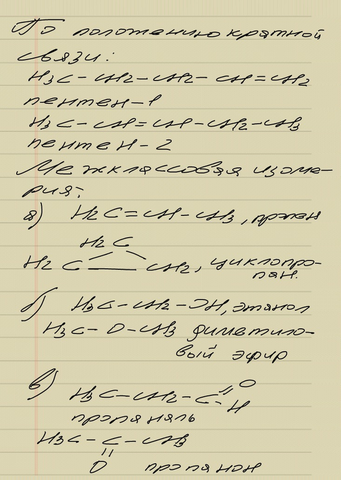 По положению кратной
связи:
H₃C – CH₂ – CH₂ – CH = CH₂
пентен-1
H₃C – CH = CH – CH₂ – CH₃
пентен-2
Межклассовая изоме-
рия:
а) H₂C = CH – CH₃, пропен
H₂C
H₂C — CH₂, циклопро-
пан.
б) H₃C – CH₂ – OH, этанол
H₃C – O – CH₃ диметило-
вый эфир
в) H₃C – CH₂ – C =O
– H
пропаналь
H₃C – C – CH₃
=
O пропанон